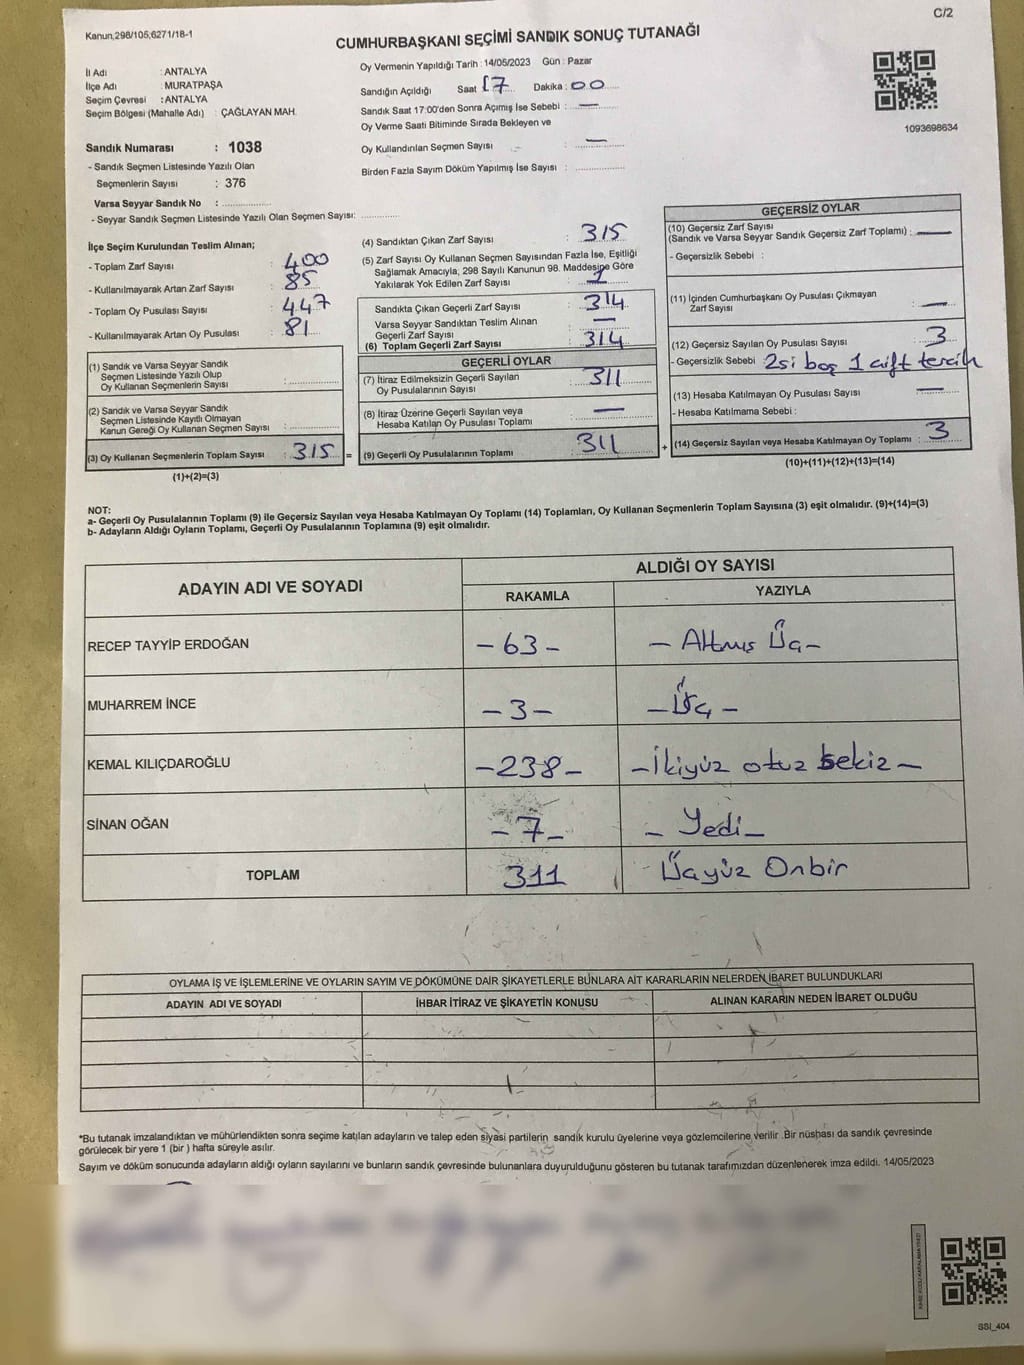 C/2
Kanun;298/105;6271/18-1
CUMHURBAŞKANI SEÇİMİ SANDIK SONUÇ TUTANAĞI
İl Adı : ANTALYA
İlçe Adı : MURATPAŞA
Seçim Çevresi : ANTALYA
Seçim Bölgesi (Mahalle Adı) : ÇAĞLAYAN MAH.
Sandık Numarası : 1038
- Sandık Seçmen Listesinde Yazılı Olan
Seçmenlerin Sayısı : 376
Varsa Seyyar Sandık No :
- Seyyar Sandık Seçmen Listesinde Yazılı Olan Seçmen Sayısı:
Oy Vermenin Yapıldığı Tarih : 14/05/2023 Gün : Pazar
Sandığın Açıldığı Saat 17 Dakika : 00
Sandık Saat 17:00'den Sonra Açımış İse Sebebi : —
Oy Verme Saati Bitiminde Sırada Bekleyen ve
Oy Kullandırılan Seçmen Sayısı : —
Birden Fazla Sayım Döküm Yapılmış İse Sayısı :
1093698634
İlçe Seçim Kurulundan Teslim Alınan;
- Toplam Zarf Sayısı : 400
- Kullanılmayarak Artan Zarf Sayısı : 85
- Toplam Oy Pusulası Sayısı : 447
- Kullanılmayarak Artan Oy Pusulası : 81
(1) Sandık ve Varsa Seyyar Sandık
Seçmen Listesinde Yazılı Olup
Oy Kullanan Seçmenlerin Sayısı :
(2) Sandık ve Varsa Seyyar Sandık
Seçmen Listesinde Kayıtlı Olmayan
Kanun Gereği Oy Kullanan Seçmen Sayısı :
(3) Oy Kullanan Seçmenlerin Toplam Sayısı : 315 =
(1)+(2)=(3)
(4) Sandıktan Çıkan Zarf Sayısı : 315
(5) Zarf Sayısı Oy Kullanan Seçmen Sayısından Fazla İse, Eşitliği
Sağlamak Amacıyla; 298 Sayılı Kanunun 98. Maddesine Göre
Yakılarak Yok Edilen Zarf Sayısı : 1
Sandıkta Çıkan Geçerli Zarf Sayısı : 314
Varsa Seyyar Sandıktan Teslim Alınan
Geçerli Zarf Sayısı : —
(6) Toplam Geçerli Zarf Sayısı : 314
GEÇERLİ OYLAR
(7) İtiraz Edilmeksizin Geçerli Sayılan
Oy Pusulalarının Sayısı : 311
(8) İtiraz Üzerine Geçerli Sayılan veya
Hesaba Katılan Oy Pusulası Toplamı : —
(9) Geçerli Oy Pusulalarının Toplamı : 311 +
GEÇERSİZ OYLAR
(10) Geçersiz Zarf Sayısı
(Sandık ve Varsa Seyyar Sandık Geçersiz Zarf Toplamı) : —
- Geçersizlik Sebebi :
(11) İçinden Cumhurbaşkanı Oy Pusulası Çıkmayan
Zarf Sayısı : —
(12) Geçersiz Sayılan Oy Pusulası Sayısı : 3
- Geçersizlik Sebebi : 2si boş 1 çift tercih
(13) Hesaba Katılmayan Oy Pusulası Sayısı : —
- Hesaba Katılmama Sebebi :
(14) Geçersiz Sayılan veya Hesaba Katılmayan Oy Toplamı : 3
(10)+(11)+(12)+(13)=(14)
NOT:
a- Geçerli Oy Pusulalarının Toplamı (9) ile Geçersiz Sayılan veya Hesaba Katılmayan Oy Toplamı (14) Toplamları, Oy Kullanan Seçmenlerin Toplam Sayısına (3) eşit olmalıdır. (9)+(14)=(3)
b- Adayların Aldığı Oyların Toplamı, Geçerli Oy Pusulalarının Toplamına (9) eşit olmalıdır.
ADAYIN ADI VE SOYADI ALDIĞI OY SAYISI
RAKAMLA YAZIYLA
RECEP TAYYİP ERDOĞAN -63- - Altmış Üç -
MUHARREM İNCE -3- - Üç -
KEMAL KILIÇDAROĞLU -238- - İkiyüz otuz sekiz -
SİNAN OĞAN -7- - Yedi -
TOPLAM 311 Üçyüz Onbir
OYLAMA İŞ VE İŞLEMLERİNE VE OYLARIN SAYIM VE DÖKÜMÜNE DAİR ŞİKAYETLERLE BUNLARA AİT KARARLARIN NELERDEN İBARET BULUNDUKLARI
ADAYIN ADI VE SOYADI İHBAR İTİRAZ VE ŞİKAYETİN KONUSU ALINAN KARARIN NEDEN İBARET OLDUĞU
*Bu tutanak imzalandıktan ve mühürlendikten sonra seçime katılan adayların ve talep eden siyasi partilerin sandık kurulu üyelerine veya gözlemcilerine verilir .Bir nüshası da sandık çevresinde
görülecek bir yere 1 (bir ) hafta süreyle asılır.
Sayım ve döküm sonucunda adayların aldığı oyların sayılarını ve bunların sandık çevresinde bulunanlara duyurulduğunu gösteren bu tutanak tarafımızdan düzenlenerek imza edildi. 14/05/2023
SSI_404